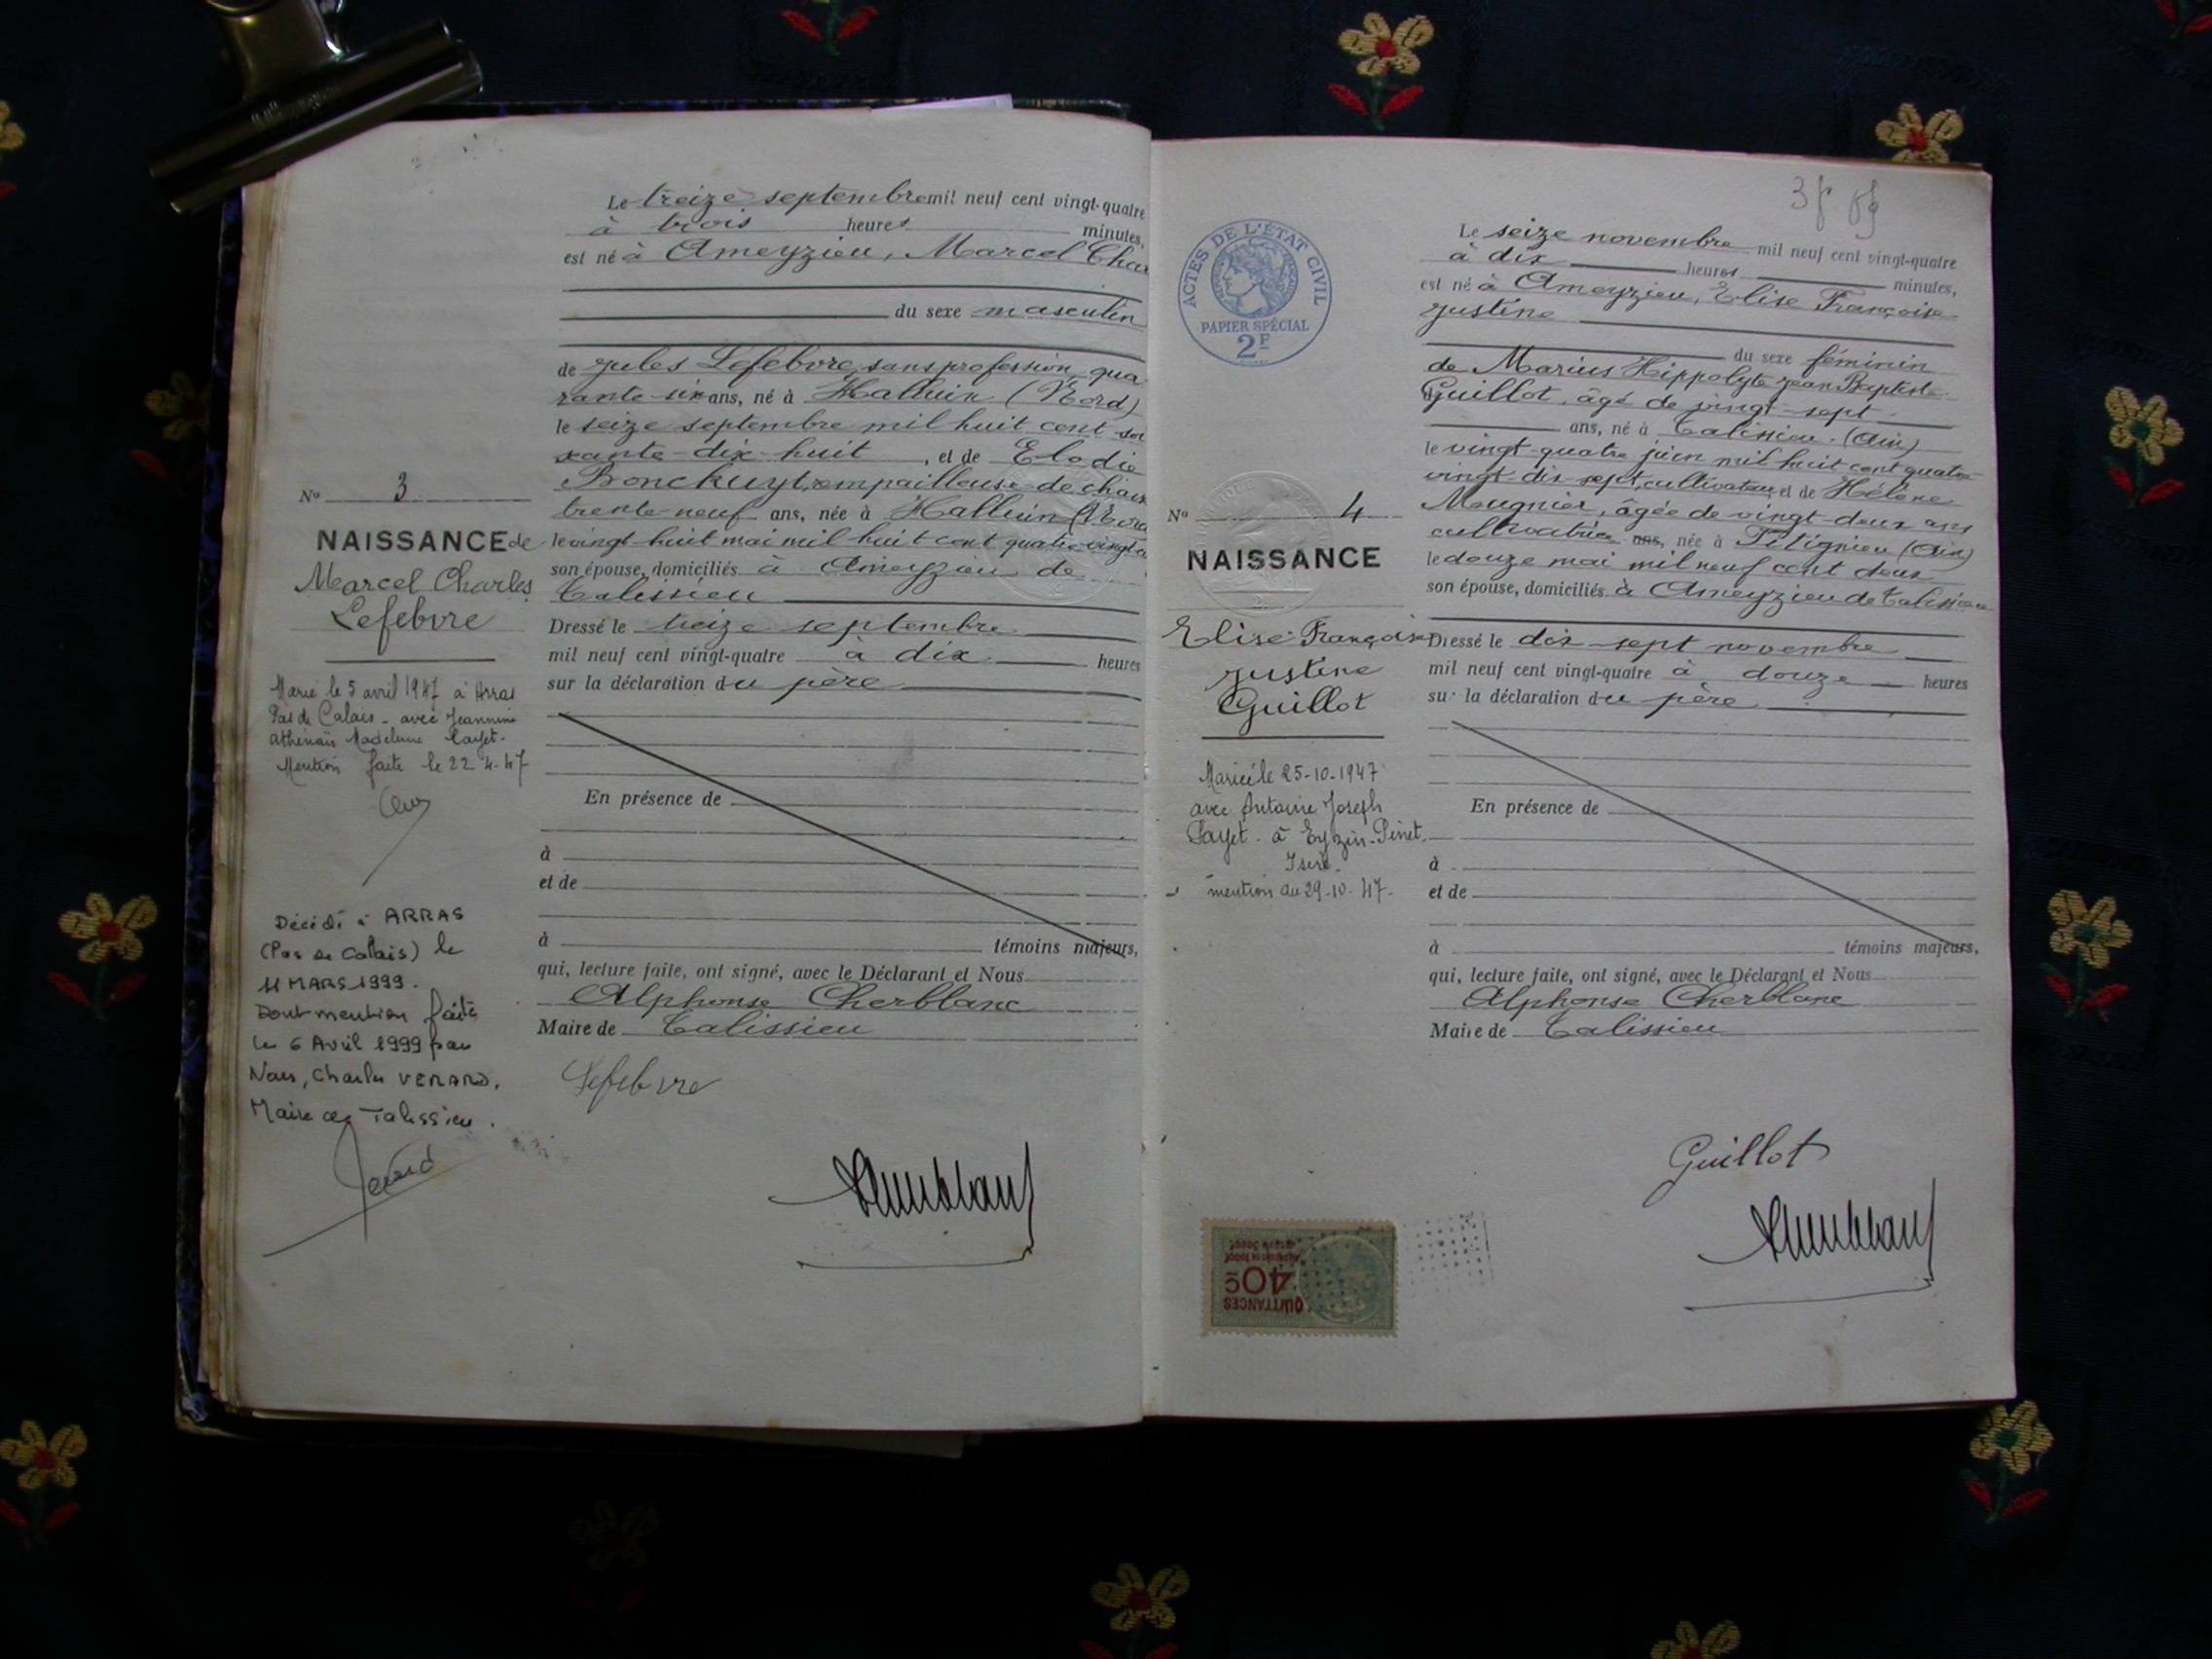 Le treize septembre mil neuf cent vingt-quatre
à trois heures minutes,
est né à Ameyzieu, Marcel Char
du sexe masculin
de Jules Lefebvre, sans profession, qua
rante-six ans, né à Halluin (Nord)
le seize septembre mil huit cent soi
xante-dix-huit, et de Elodie
Bonckuyt, rempailleuse de chais
trente-neuf ans, née à Halluin (Nord
le vingt-huit mai mil huit cent quatre-vingt-
son épouse, domiciliés à Ameyzieu de
Talissieu
Dressé le treize septembre
mil neuf cent vingt-quatre à dix heures
sur la déclaration du père
En présence de
à
et de
à témoins majeurs,
qui, lecture faite, ont signé, avec le Déclarant et Nous
Alphonse Cherblanc
Maire de Talissieu
Lefebvre
No 3
NAISSANCE de
Marcel Charles
Lefebvre
Marié le 5 avril 1947 à Arras
Pas de Calais - avec Jeannine
Athénaïs Madeleine
Mention faite le 22-4-47
Décédé à ARRAS
(Pas de Calais) le
11 MARS 1999.
Dont mention faite
le 6 Avril 1999 par
Nous, Charles VERARD,
Maire de Talissieu.
ACTES DE L'ÉTAT CIVIL
PAPIER SPÉCIAL
2F
Le seize novembre mil neuf cent vingt-quatre
à dix heures minutes,
est né à Ameyzieu, Elise Françoise
Justine
du sexe féminin
de Marius Hippolyte Jean Baptiste
Guillot, âgé de vingt-sept
ans, né à Talissieu (Ain)
le vingt-quatre juin mil huit cent quatre
vingt-dix-sept, cultivateur, et de Hélène
Meugnier, âgée de vingt-deux ans
cultivatrice ans, née à Titignieu (Ain)
le douze mai mil neuf cent deux
son épouse, domiciliés à Ameyzieu de Talissieu
Dressé le dix-sept novembre
mil neuf cent vingt-quatre à douze heures
sur la déclaration du père
En présence de
à
et de
à témoins majeurs,
qui, lecture faite, ont signé, avec le Déclarant et Nous
Alphonse Cherblanc
Maire de Talissieu
Guillot
No 4
NAISSANCE
Elise Françoise
Justine
Guillot
Mariée le 25-10-1947
avec Antoine Joseph
Payet à Eyzin-Pinet
Isère
mention du 29-10-47-
QUITTANCES
40c